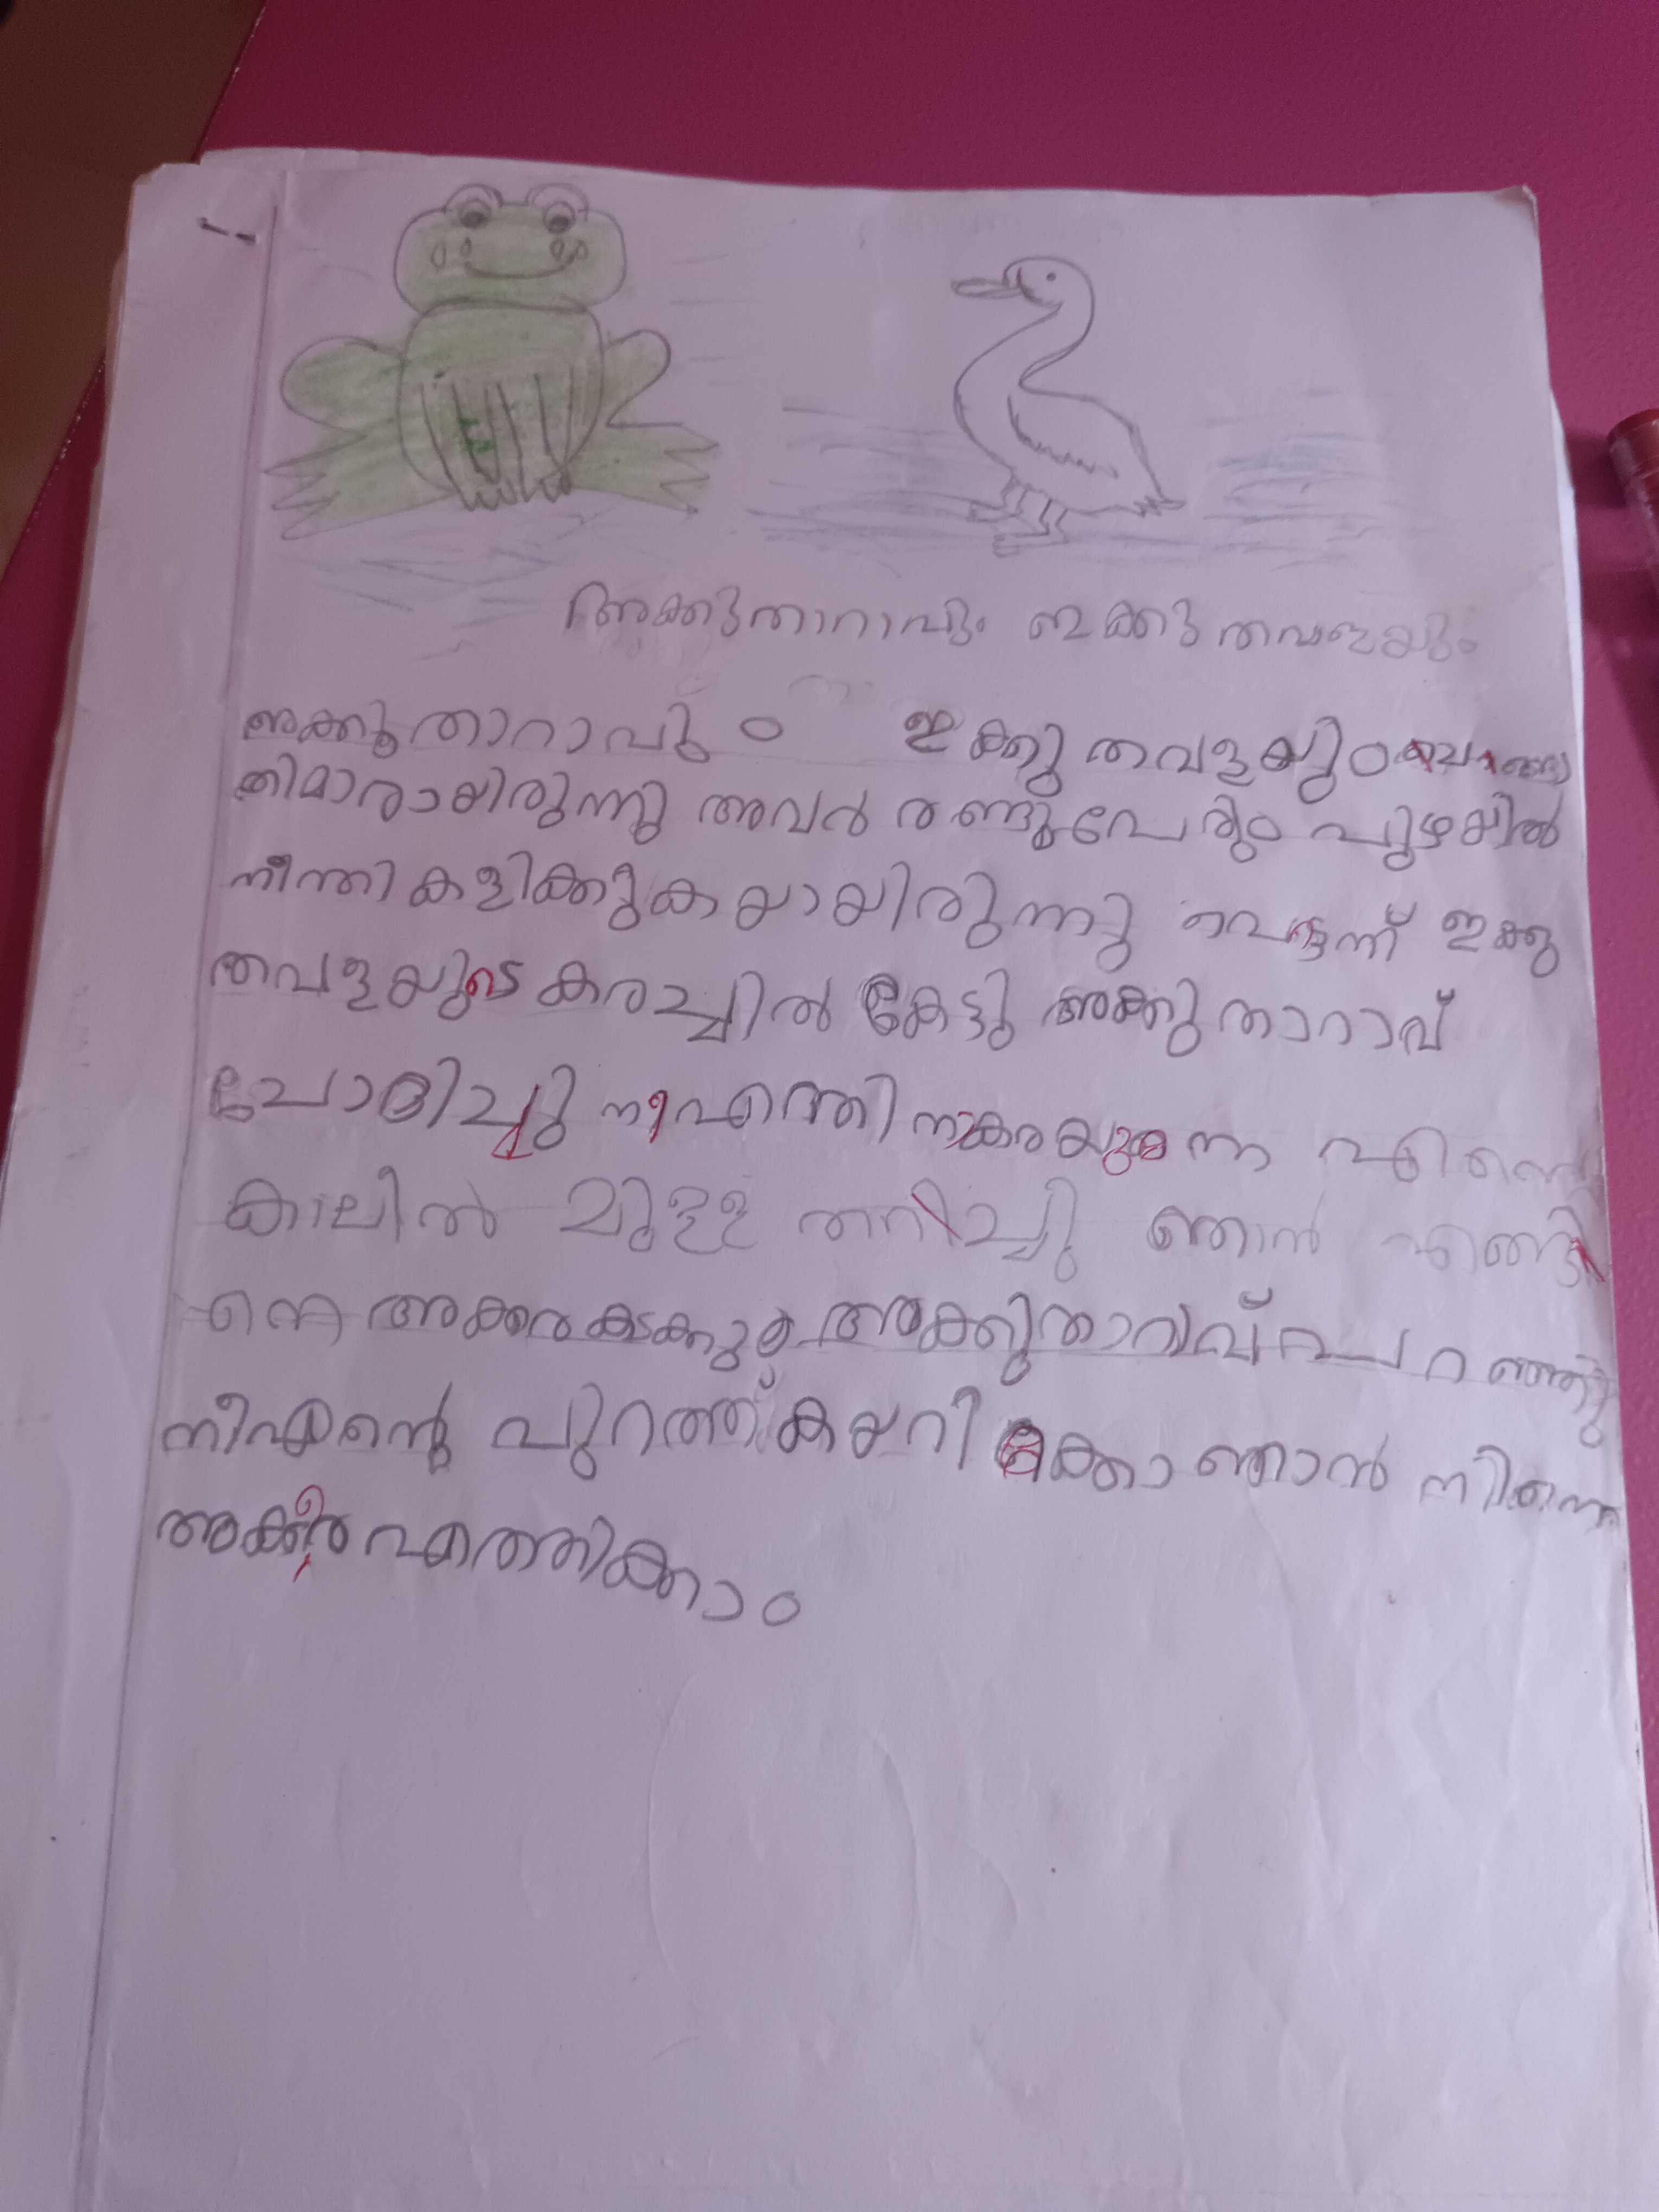 അക്കുതാറാവും ഇക്കു തവളയും
അക്കുതാറാവും ഇക്കു തവളയും
തിമാരായിരുന്നു അവർ രണ്ടുപേരും പുഴയിൽ
നീന്തി കളിക്കുകയായിരുന്നു പെട്ടന്ന് ഇക്കു
തവളയുടെ കരച്ചിൽ കേട്ടു അക്കു താറാവ്
ചോദിച്ചു നീ എന്തി നാകരയുന്ന എന്റെ
കാലിൽ മുള്ള് തറിച്ചു ഞാൻ എങ്ങ
എനെ അക്കര കടക്കും അക്കുതാറാവ് പറഞ്ഞു
നീ എന്റെ പുറത്ത് കയറി ക്കോ ഞാൻ നിന്നെ
അക്കര എത്തിക്കാം